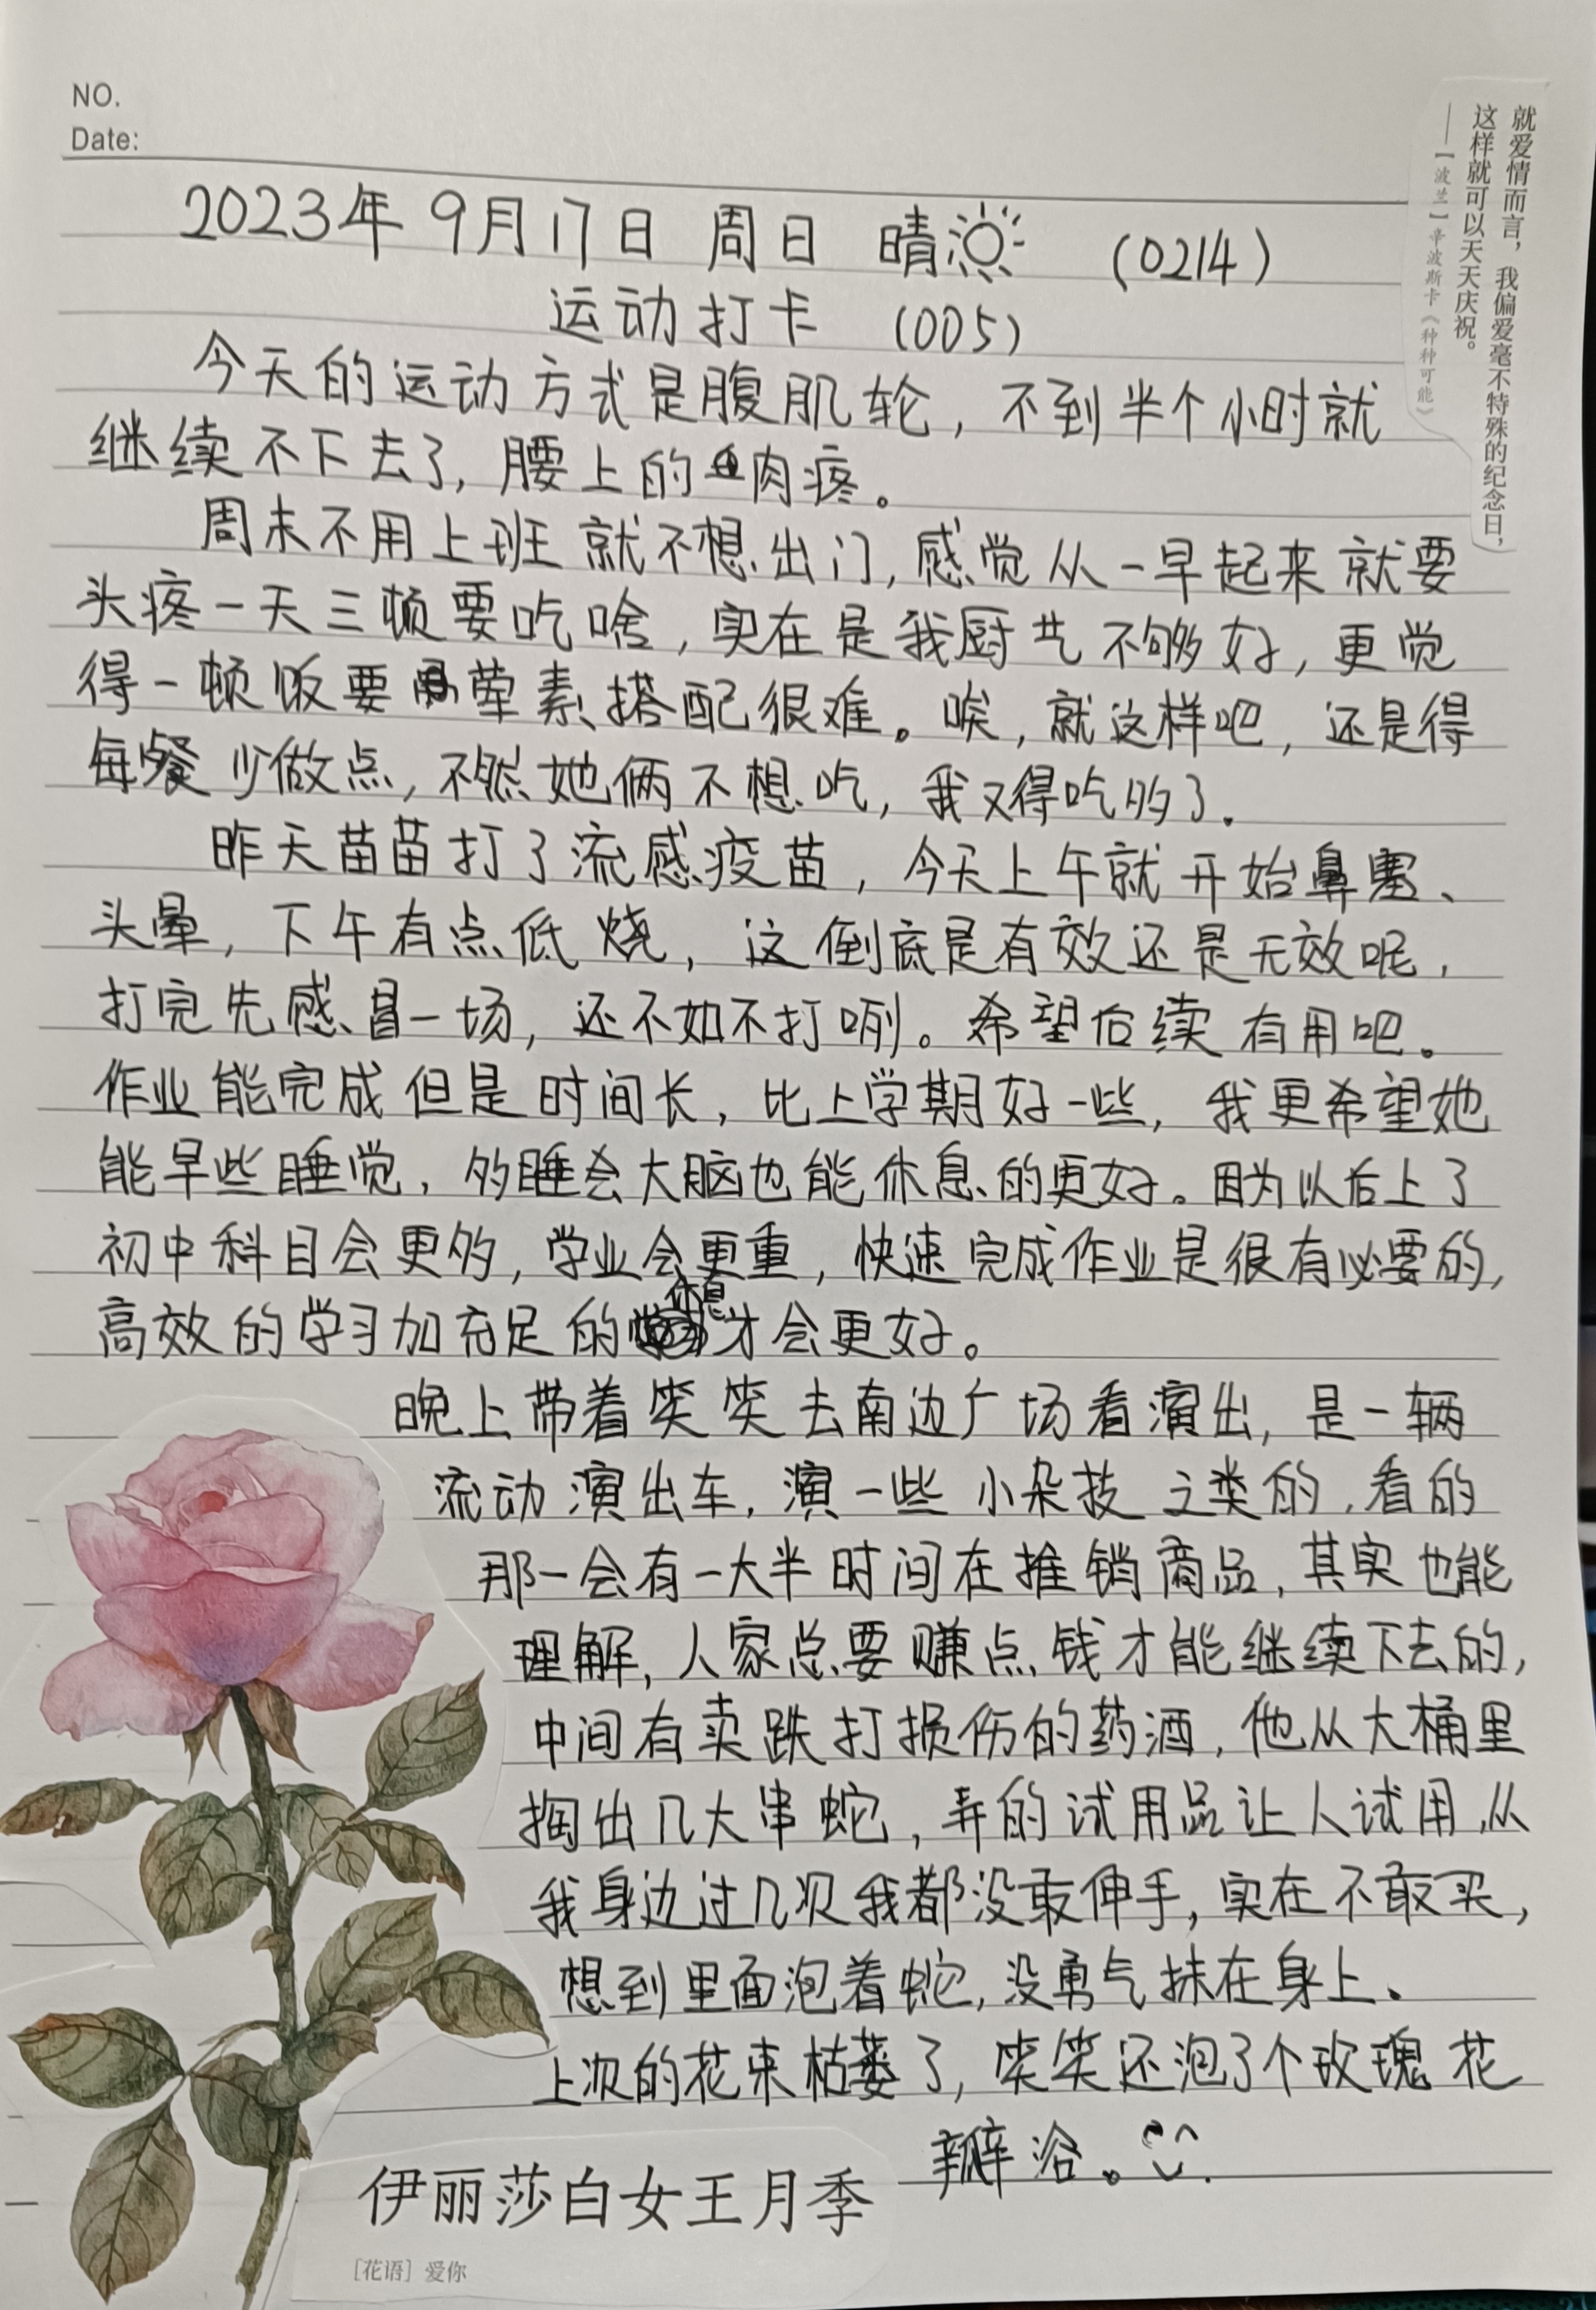 NO.
Date:
就爱情而言，我偏爱毫不特殊的纪念日，
这样就可以天天庆祝。
——【波兰】辛波斯卡《种种可能》
2023年9月17日 周日 晴 (0214)
运动打卡 (005)
今天的运动方式是腹肌轮，不到半个小时就
继续不下去了，腰上的肉疼。
周末不用上班就不想出门，感觉从一早起来就要
头疼一天三顿要吃啥，实在是我厨艺不够好，更觉
得一顿饭要荤素搭配很难。唉，就这样吧，还是得
每餐少做点，不然她俩不想吃，我又得吃多了。
昨天苗苗打了流感疫苗，今天上午就开始鼻塞、
头晕，下午有点低烧，这倒底是有效还是无效呢，
打完先感冒一场，还不如不打咧。希望后续有用吧。
作业能完成但是时间长，比上学期好一些，我更希望她
能早些睡觉，多睡会大脑也能休息的更好。因为以后上了
初中科目会更多，学业会更重，快速完成作业是很有必要的，
高效的学习加充足的休息才会更好。
晚上带着笑笑去南边广场看演出，是一辆
流动演出车，演一些小杂技之类的，看的
那一会有一大半时间在推销商品，其实也能
理解，人家总要赚点钱才能继续下去的，
中间有卖跌打损伤的药酒，他从大桶里
掏出几大串蛇，弄的试用品让人试用，从
我身边过几次我都没敢伸手，实在不敢买，
想到里面泡着蛇，没勇气抹在身上。
上次的花束枯萎了，笑笑还泡了个玫瑰花
瓣浴。
伊丽莎白女王月季
［花语］爱你